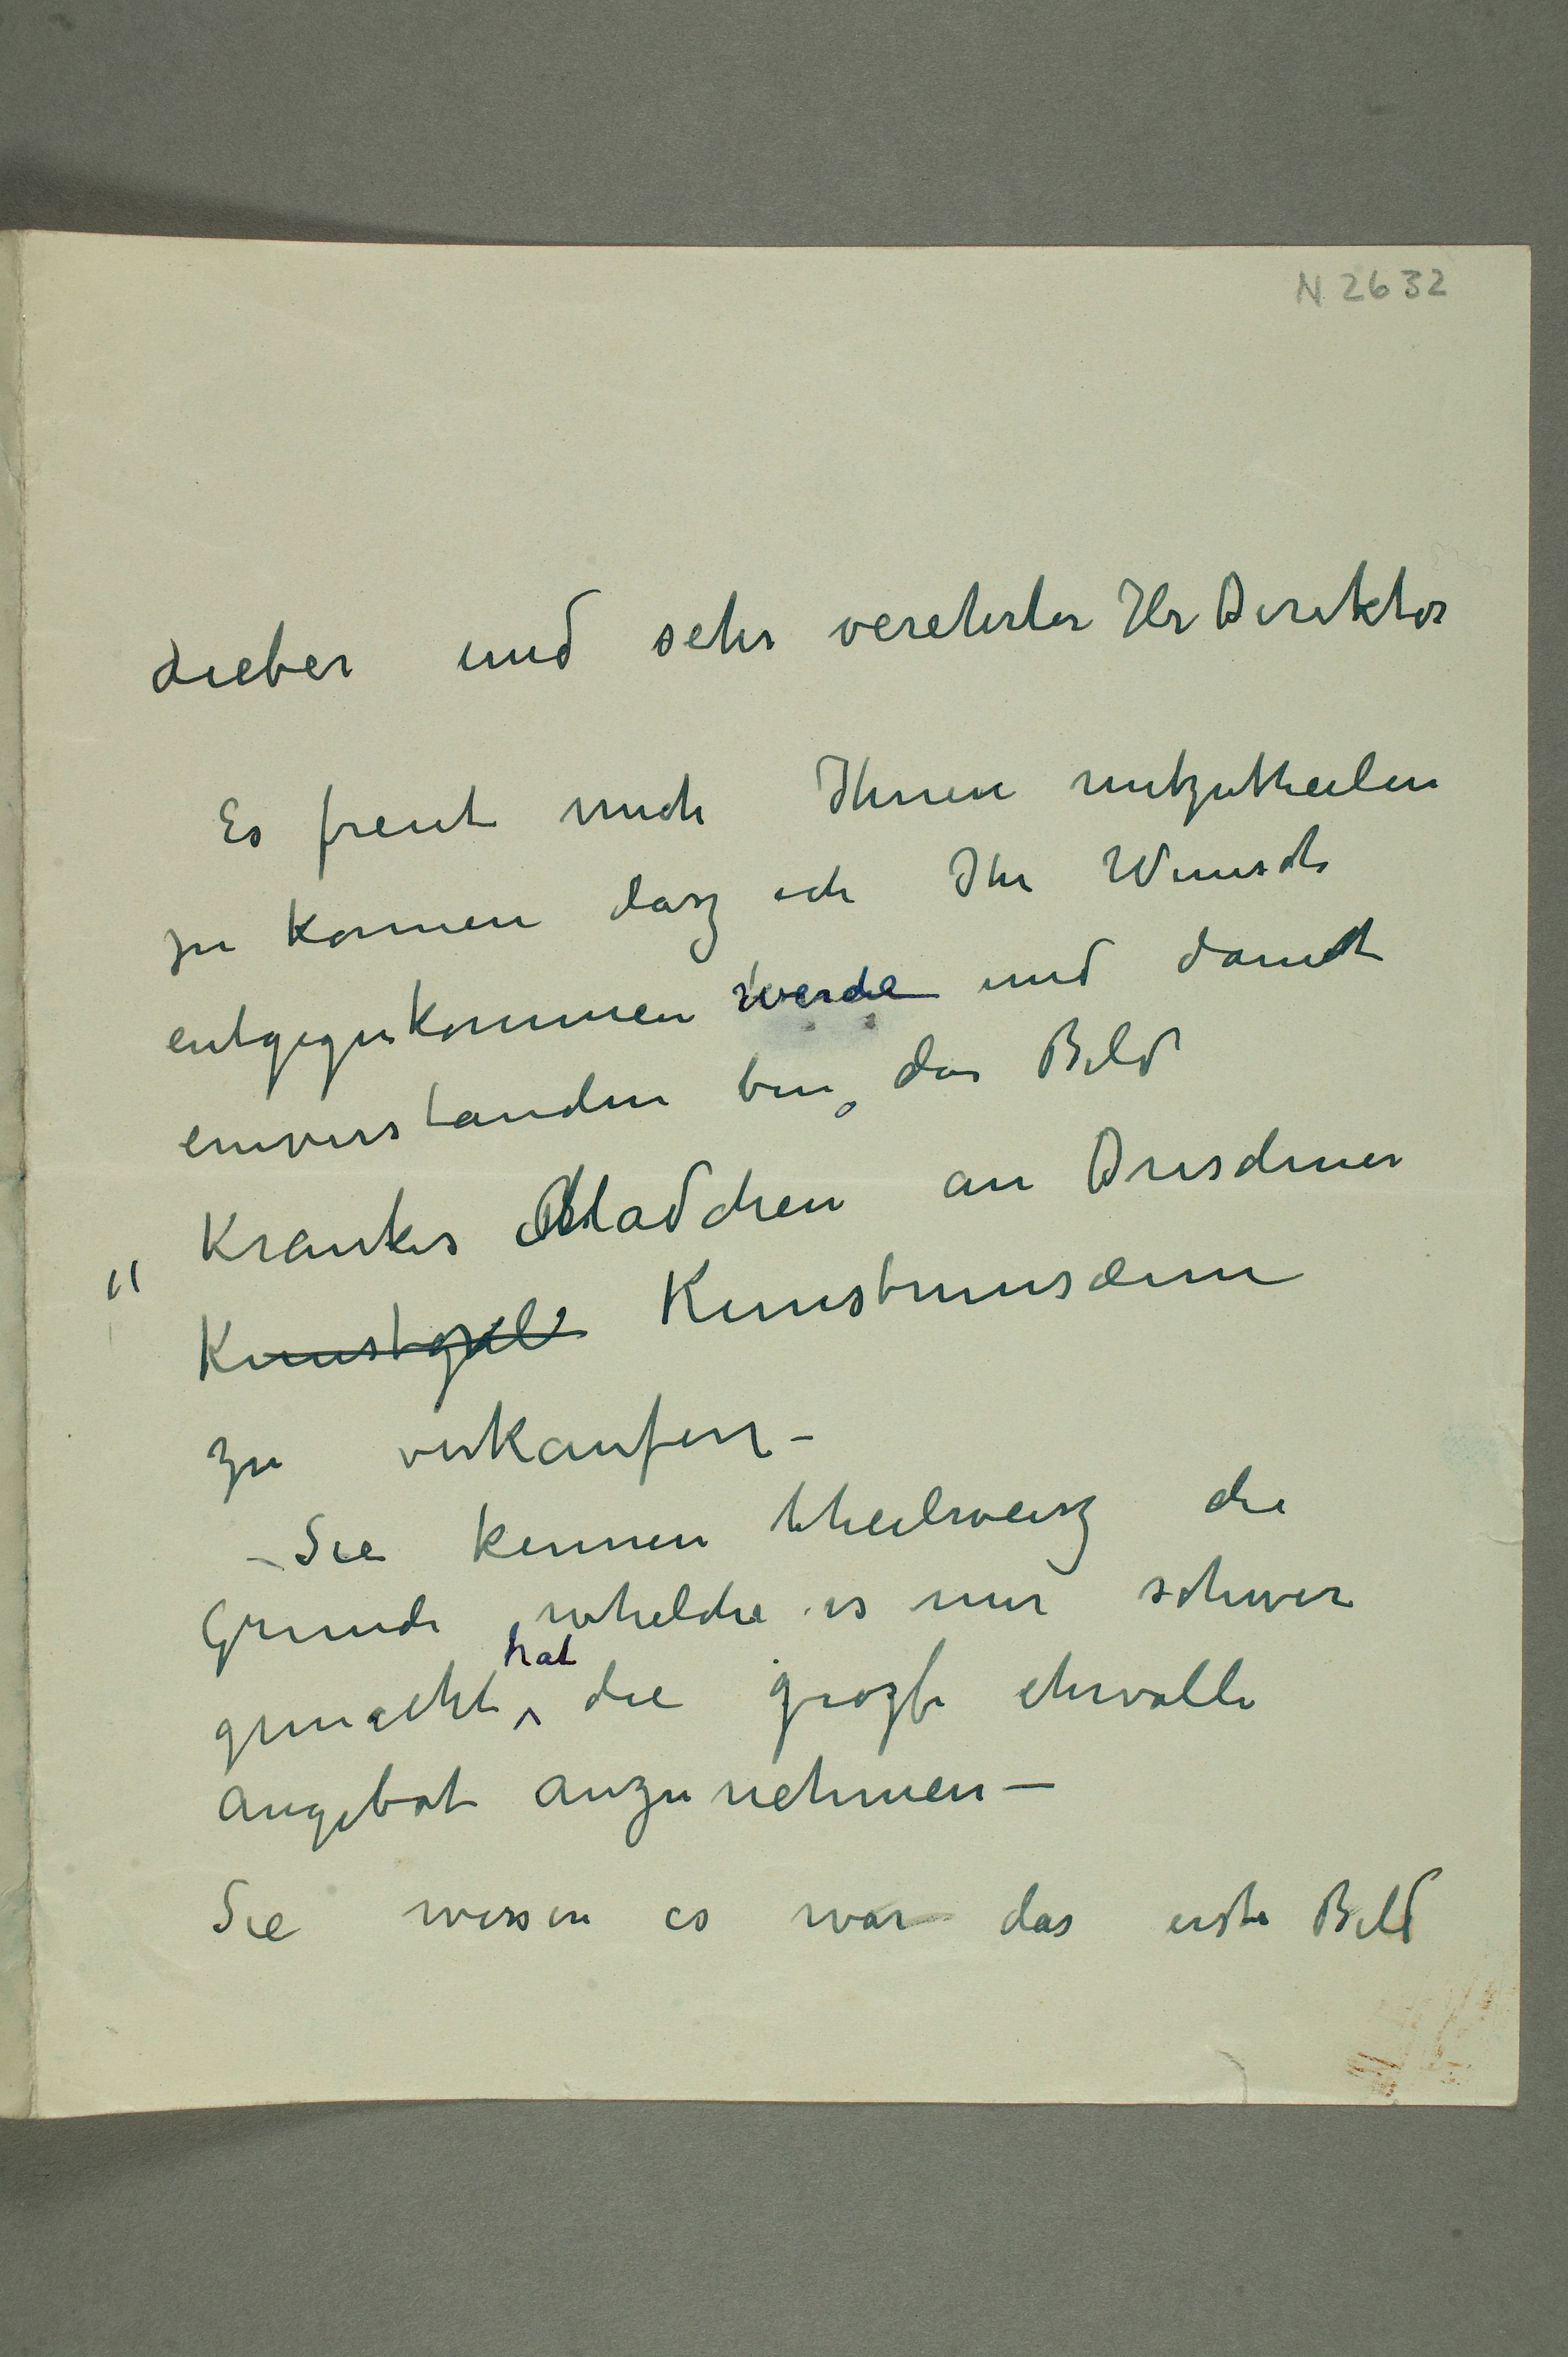 N 2632
Lieber und sehr verehrter Hr Direktor
Es freut mich Ihnen mitzutheilen
zu konnen dasz ich Ihr Wunsch
entgegenkommen werde und damit
einverstanden bin, das Bild
„Krankes Madchen an Dresdener
Kunstgal Kunstmusæum
zu verkaufen –
– Sie kennen theilweisz die
Grunde whelche es mir schwer
gemacht hat die grozse ehrvolle
Angebot anzunehmen –
Sie wissen es war das erste Bild